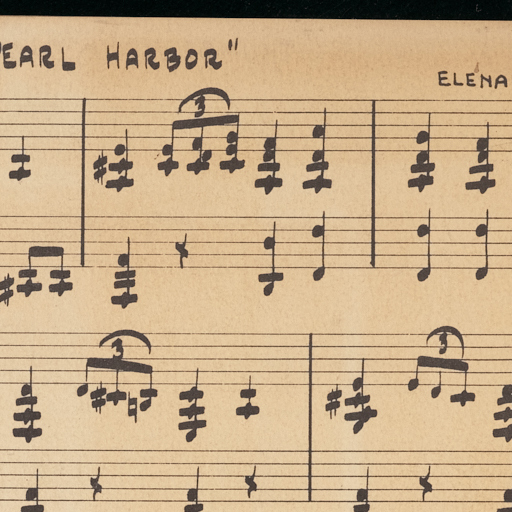 "EARL HARBOR"
ELENA
3
3
3